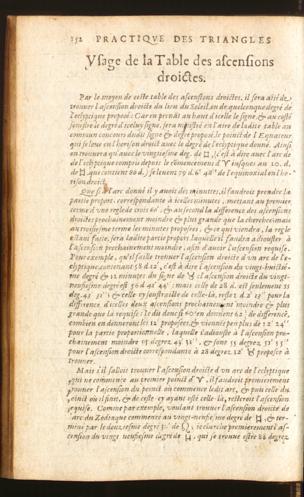 152 PRACTIQVE DES TRIANGLES
Vsage de la Table des ascensions
droictes.
Par le moyen de ceste table des ascensions droictes, il sera aisé de
trouver l'ascension droite du lieu du Soleil, ou de quelconque degré de
l'ecliptique proposé: Car en prenãt au haut d'icelle le signe, & au costé
senestre le degré d'iceluy signe, sera en l'aire de ladite table au
commun concours dudit signe & degré proposé le poinct de l'Equateur
qui se leve en l'horison droict avec le degré de l'ecliptique donné. Ainsi
on trouvera qu'avec le vingtiesme deg. de ♉, c'est à dire avec l'arc de
de l'ecliptique compris depuis le commencement d'♈ jusques au 20. d.
de que contient 80 d. se levent
rison droict.
Que si l'arc donné il y avoit des minutes, il faudroit prendre la
partie propor. correspondante à icelles minutes, mettant au premier
terme d'une regle de trois 60, & au second la difference des ascensions
droictes prochainement moindre & plus grande que la cherchée: mais
au troisiesme terme les minutes proposees, & ce qui viendra, la regle
estant faite, sera ladite partie propor. laquelle il faudra adjouster à
l'ascension prochainement moindre, afin d'avoir l'ascension requise.
Pour exemple, qu'il faille trouver l'ascension droite d'un arc de l'e-
cliptique contenant 58 d. 12', c'est à dire l'ascension du vingt-huictie-
me degré & 12 minutes du signe de ♉: l'ascension droite du vingt-
neufiesme degré est 56 d. mais celle de 28 d. est seulement 55
deg. & celle-cy soustraicte de celle-là, reste pour la
difference d'icelles deux ascensions prochainement moindre & plus
grande que la requise: le di donc si 60 donnent 62' de difference,
combien en donneront les 12' proposez, & viennent peu plus de 12' 24''
pour la partie proportionnelle, laquelle l'adjouste à l'ascension pro-
chainement moindre 55 degrez & sont 55 degrez
pour l'ascension droicte correspondante à 28 degrez 12' ♉ proposez à
trouver.
Mais s'il falloit trouver l'ascension droite d'un arc de l'ecliptique
qui ne commence au premier poinct d'♈, il faudroit premierement
trouver l'ascension du poinct où commence ledit arc, & puis celle du
poinct où il finit, & de ceste-cy ayant osté celle-là, restera l'ascension
requise. Comme par exemple, voulant trouver l'ascension droite du
arc du Zodiaque commençant au vingt-neufiesme degré de & ter-
miné par le douziesme degré de ♌; ie cherche premierement l'as-
cension du vingt neufiesme degré de qui se trouve estre 88 degrez